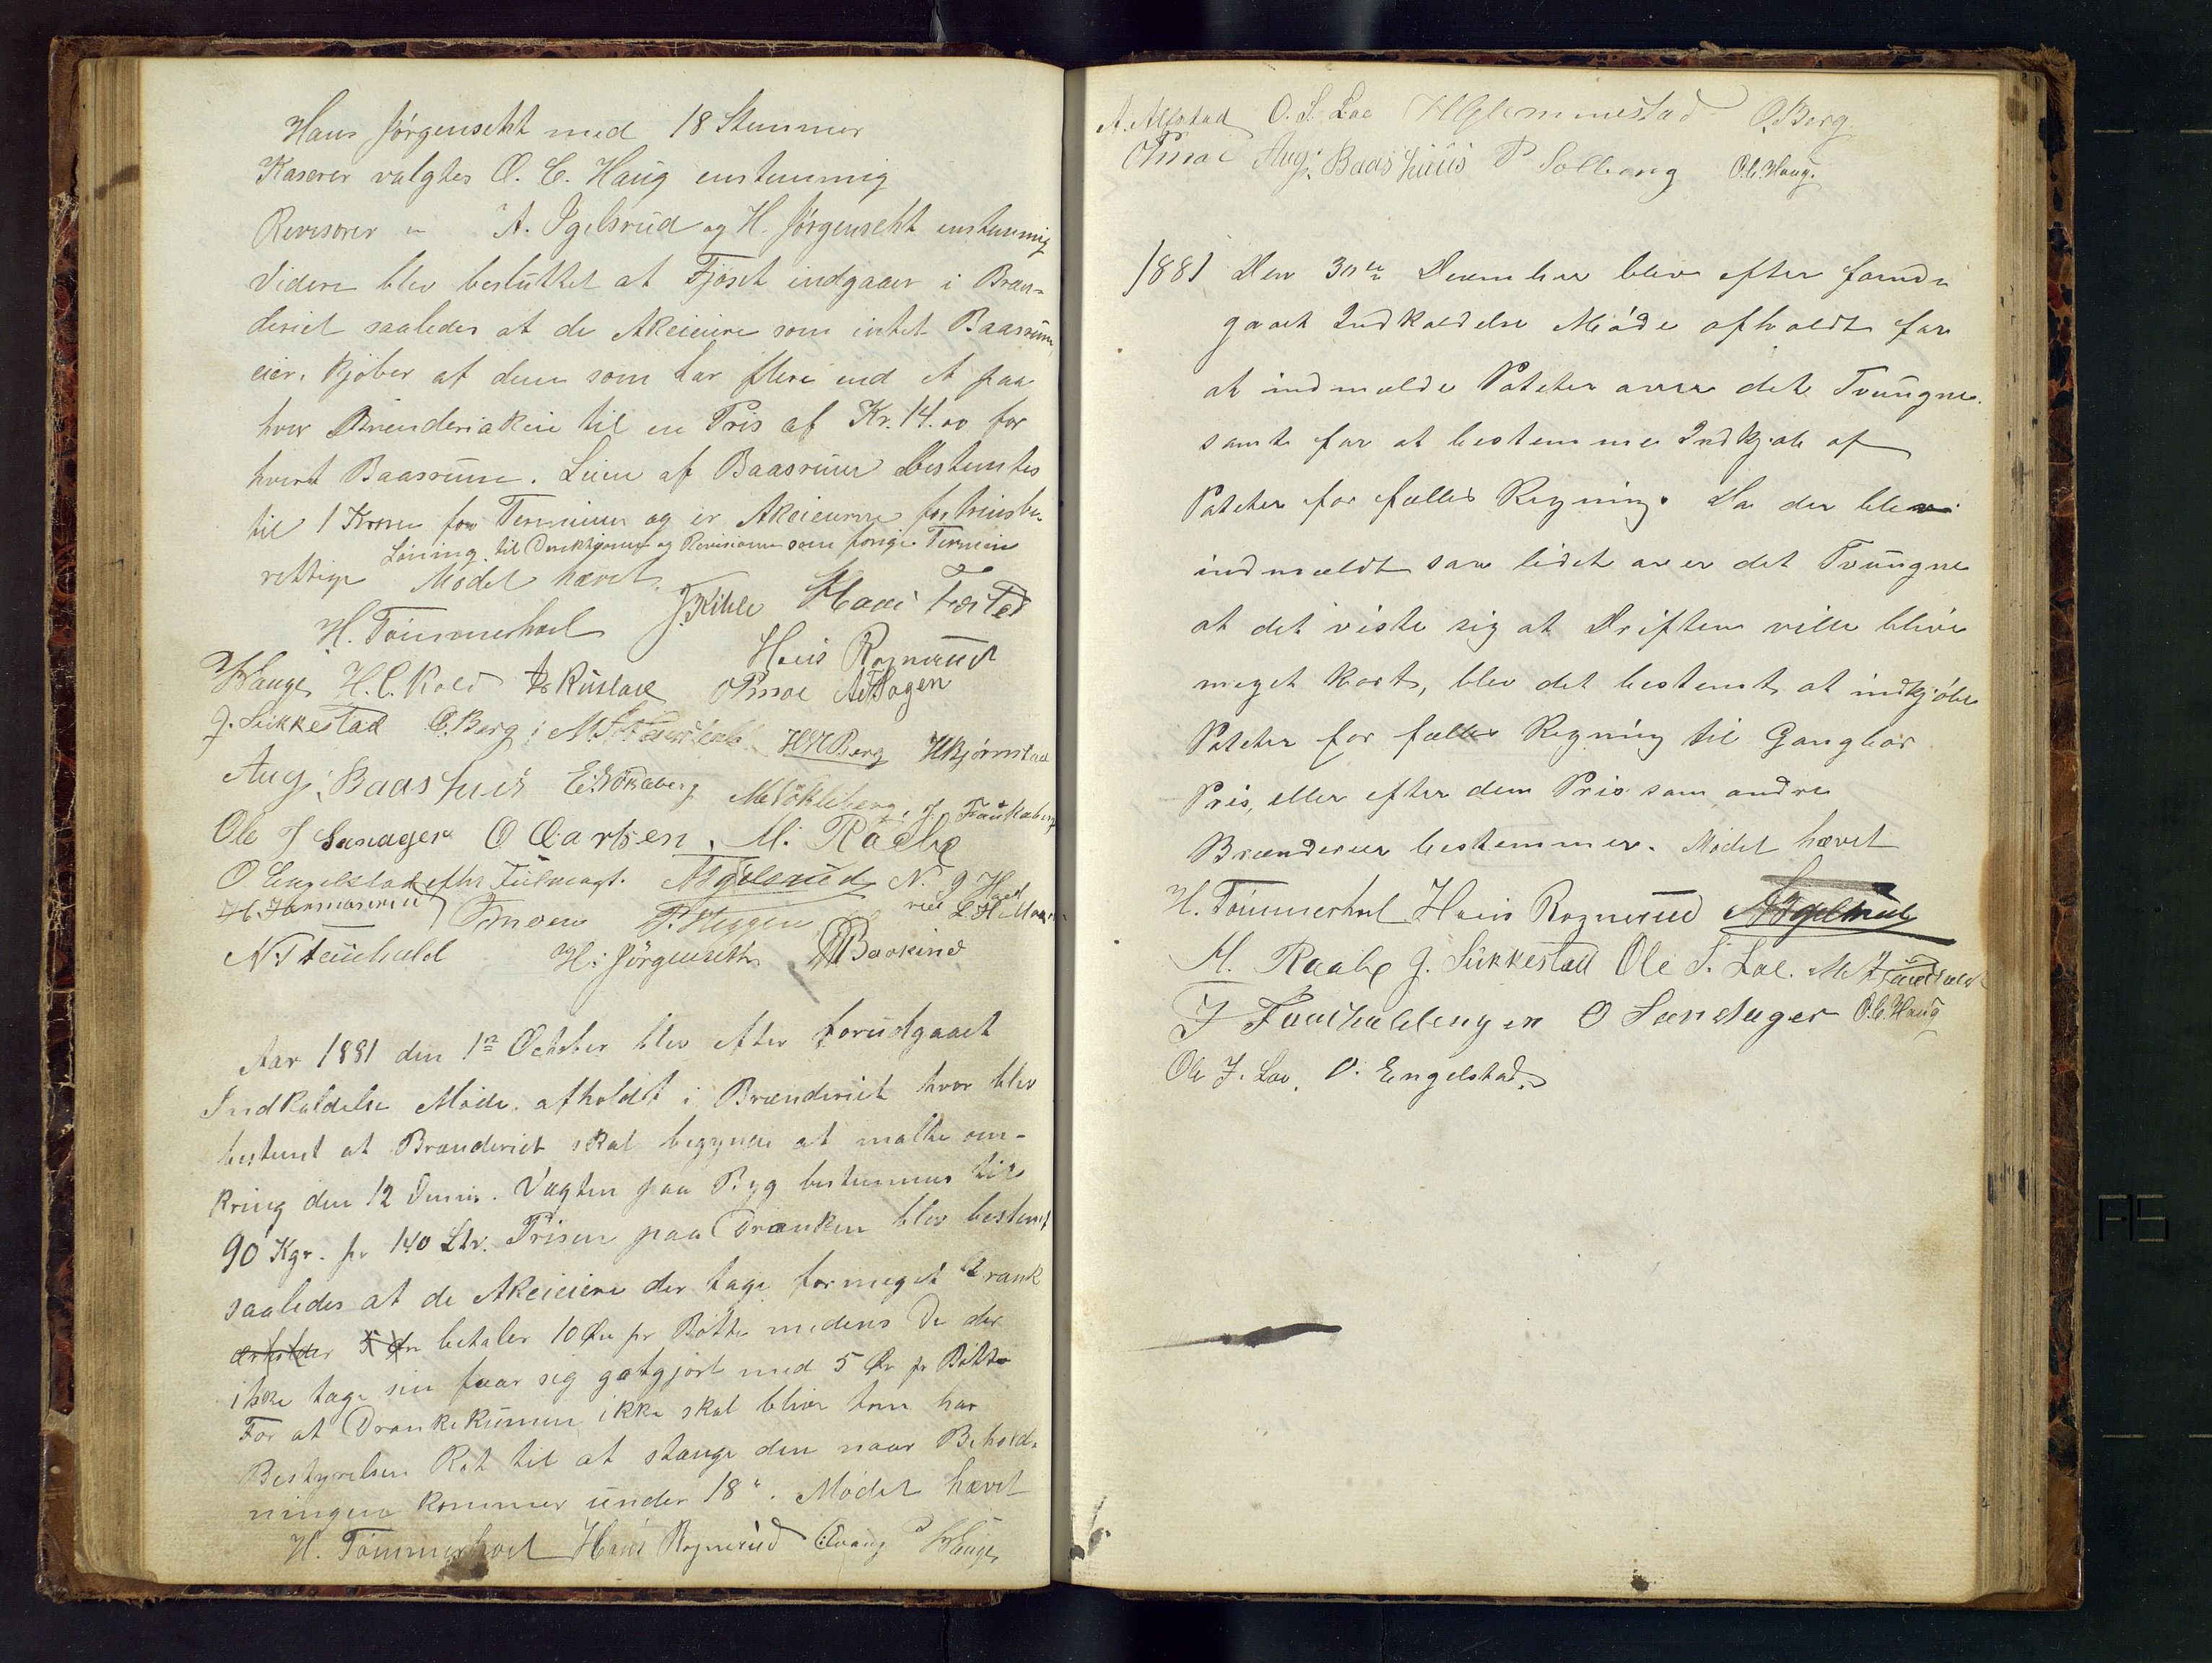 Hans Jørgenseth med 18 Stemmer
Kaserer valgtes O. C. Haug enstemmig
Revisorer " A. Igelsrud og H. Jørgenseth enstemmig
Videre blev besluttet at Fjøset indgaaer i Bræn-
deriet saaledes at de Akcieiere som intet Baasrum
eier, kjøber af dem som har flere end et paa
hver Brænderiakcie til en Pris af Kr. 14.00 for
hvert Baasrum. Leien af Baasrum bestemtes
til 1 Krone for Terminen og er Akcieierne fortrinsbe-
Lønning til Direktionen og Revisionen som forrige Termin
rettige Mødet hævet.
H. Tømmerhol J. Kihle Hans Festad
Hans Rognerud
Hauge H. C. Kold Ruslad O Moe A Hagen
J. Sukkestad O. Berg M. Staurseth H N Berg H Bjørnstad
Aug. Baashuus E. Vøkleberg M Vøkleberg, J.
Ole J Sanager O Evartsen, M. Raabe
O Engelstad efter Fulmagt. A Igelsrud N.
Moen P. Heggen ved L. H. Moen
N. Fauchald H: Jørgenseth Baskind
Aar 1881 den 1ste October blev efter forudgaaet
Indkaldelse Møde afholdt i Brænderiet hvor blev
bestemt at Brænderiet skal begynde at malte om-
kring den 12 Dennis. Vægten paa Byg bestemmes til
90 Kgr. pr 140 Ltr. Prisen paa Dranken blev bestemt
saaledes at de Akcieiere der tage formeget Drank
betaler 10 Øre pr Bøtte medens De der
ikke tage sin faar sig gotgjort med 5 Øre pr Bøtte
For at Drankekummen ikke skal blive tom har
Bestyrelsen Ret til at stænge den naar Behold-
ningen kommer under 18". Mødet hævet
H. Tømmerhol Hans Rognerud Evang Hauge
A. Alfstad O. S. Loe H Glemmestad O. Berg
O Moe Aug. Baashuus P Solberg O. C. Haug.
1881 Den 30te December blev efter forud-
gaaet Indkaldelse Møde afholdt for
at indmelde Poteter over det Tvungne
samt for at bestemme Indkjøb af
Poteter for fælles Regning. Da der blev
indmeldt saa lidet over det Tvungne
at det viste sig at Driften ville blive
meget kort, blev det bestemt at indkjøbe
Poteter for fælles Regning til Gangbar
Pris, eller efter den Pris som andre
Brænderier bestemmer. Mødet hævet
H. Tømmerhol Hans Rognerud A Igelsrud
M. Raabe J. Sukkestad Ole S. Loe. M Staurseth
J Fauchaldengen O Sandager O. C. Haug
Ole J. Loe. O. Engelstad.